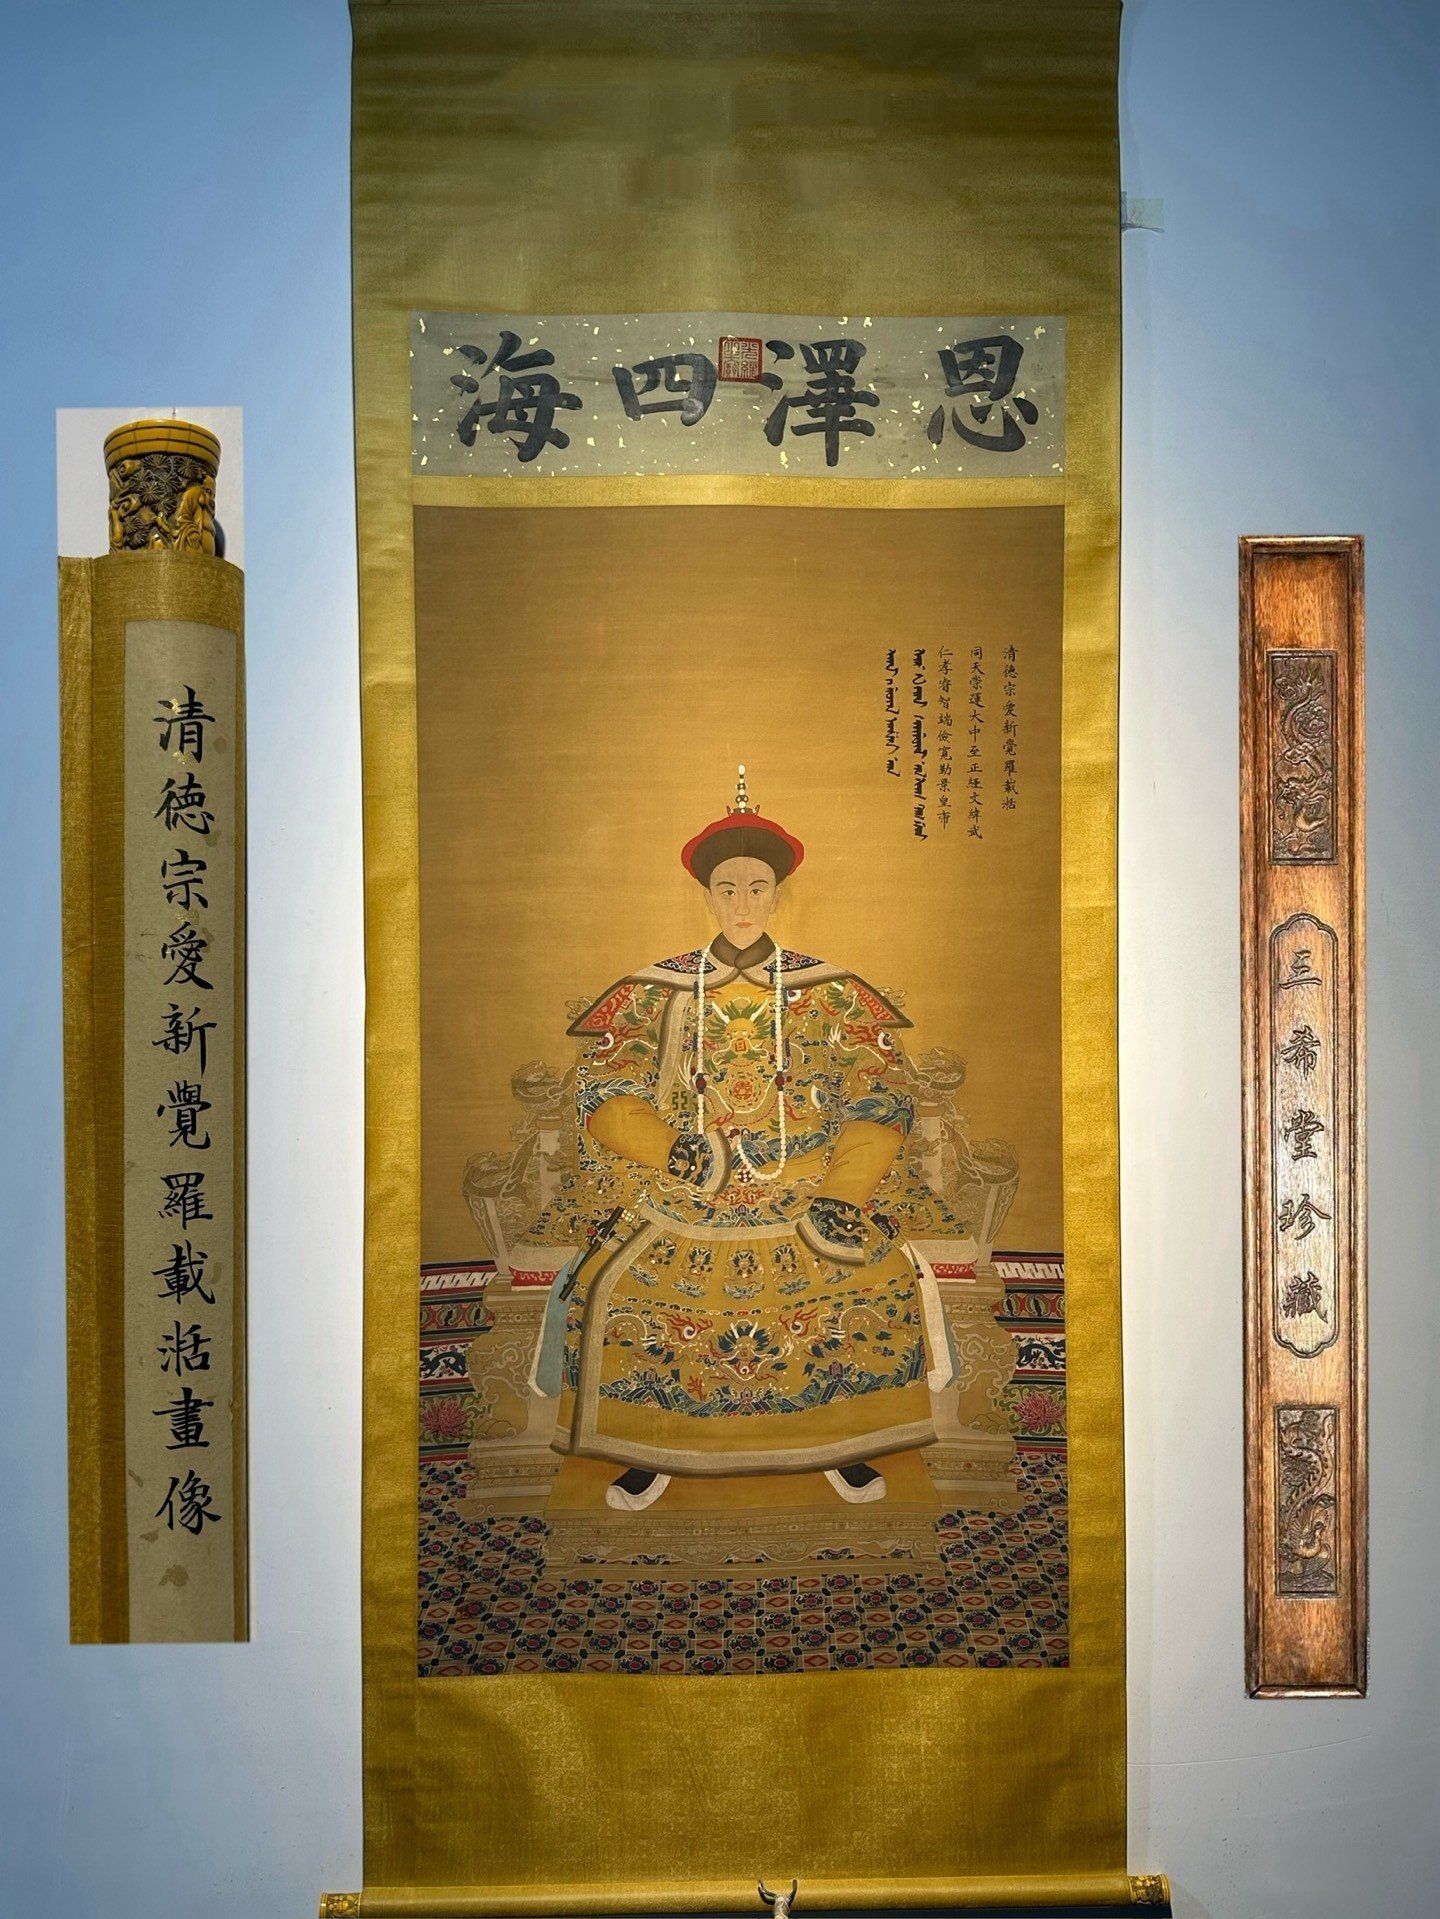 恩澤四海
清德宗愛新覺羅載湉
同天崇運大中至正經文緯武
仁孝睿智端儉寬勤景皇帝
清德宗愛新覺羅載湉畫像
三希堂珍藏